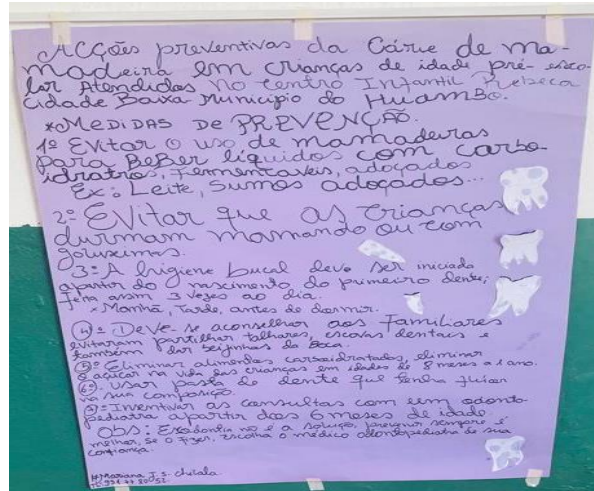 Acções preventivas da Cárie de ma-
madeira em crianças de idade pré-esco-
lar Atendidas no Centro Infantil Rebeca
cidade Baixa Município do Huambo.
*MEDIDAS DE PREVENÇÃO.
1º Evitar o uso de mamadeiras
para Beber líquidos com carbo-
idratros, Fermentaveis, adoçados
Ex: Leite, Sumos adoçados...
2º Evitar que as crianças
durmam mamando ou com
guloseimas.
3º A higiene bucal deve ser iniciada
apartir do nascimento do primeiro dente,
feita assim 3 vezes ao dia.
* Manhã, Tarde, antes de dormir.
4º Deve-se aconselhar aos Familiares
evitarem partilhar talhares, escovas dentais e
também dar beijinhos da boca.
5º Eliminar alimentos carboidratados, eliminar
o açucar na vida das crianças em idades de 8 meses a 1 ano.
6º Usar pasta de dente que tenha fluor
na sua composição.
7º Inventivar as consultas com um odonto-
pediatra apartir dos 6 meses de idade.
Obs: Exodontia não é a solução, prevenir sempre é
melhor, se o fizer, escolha o médico odontopediatra de sua
confiança.
Mariana J.S. Chilala